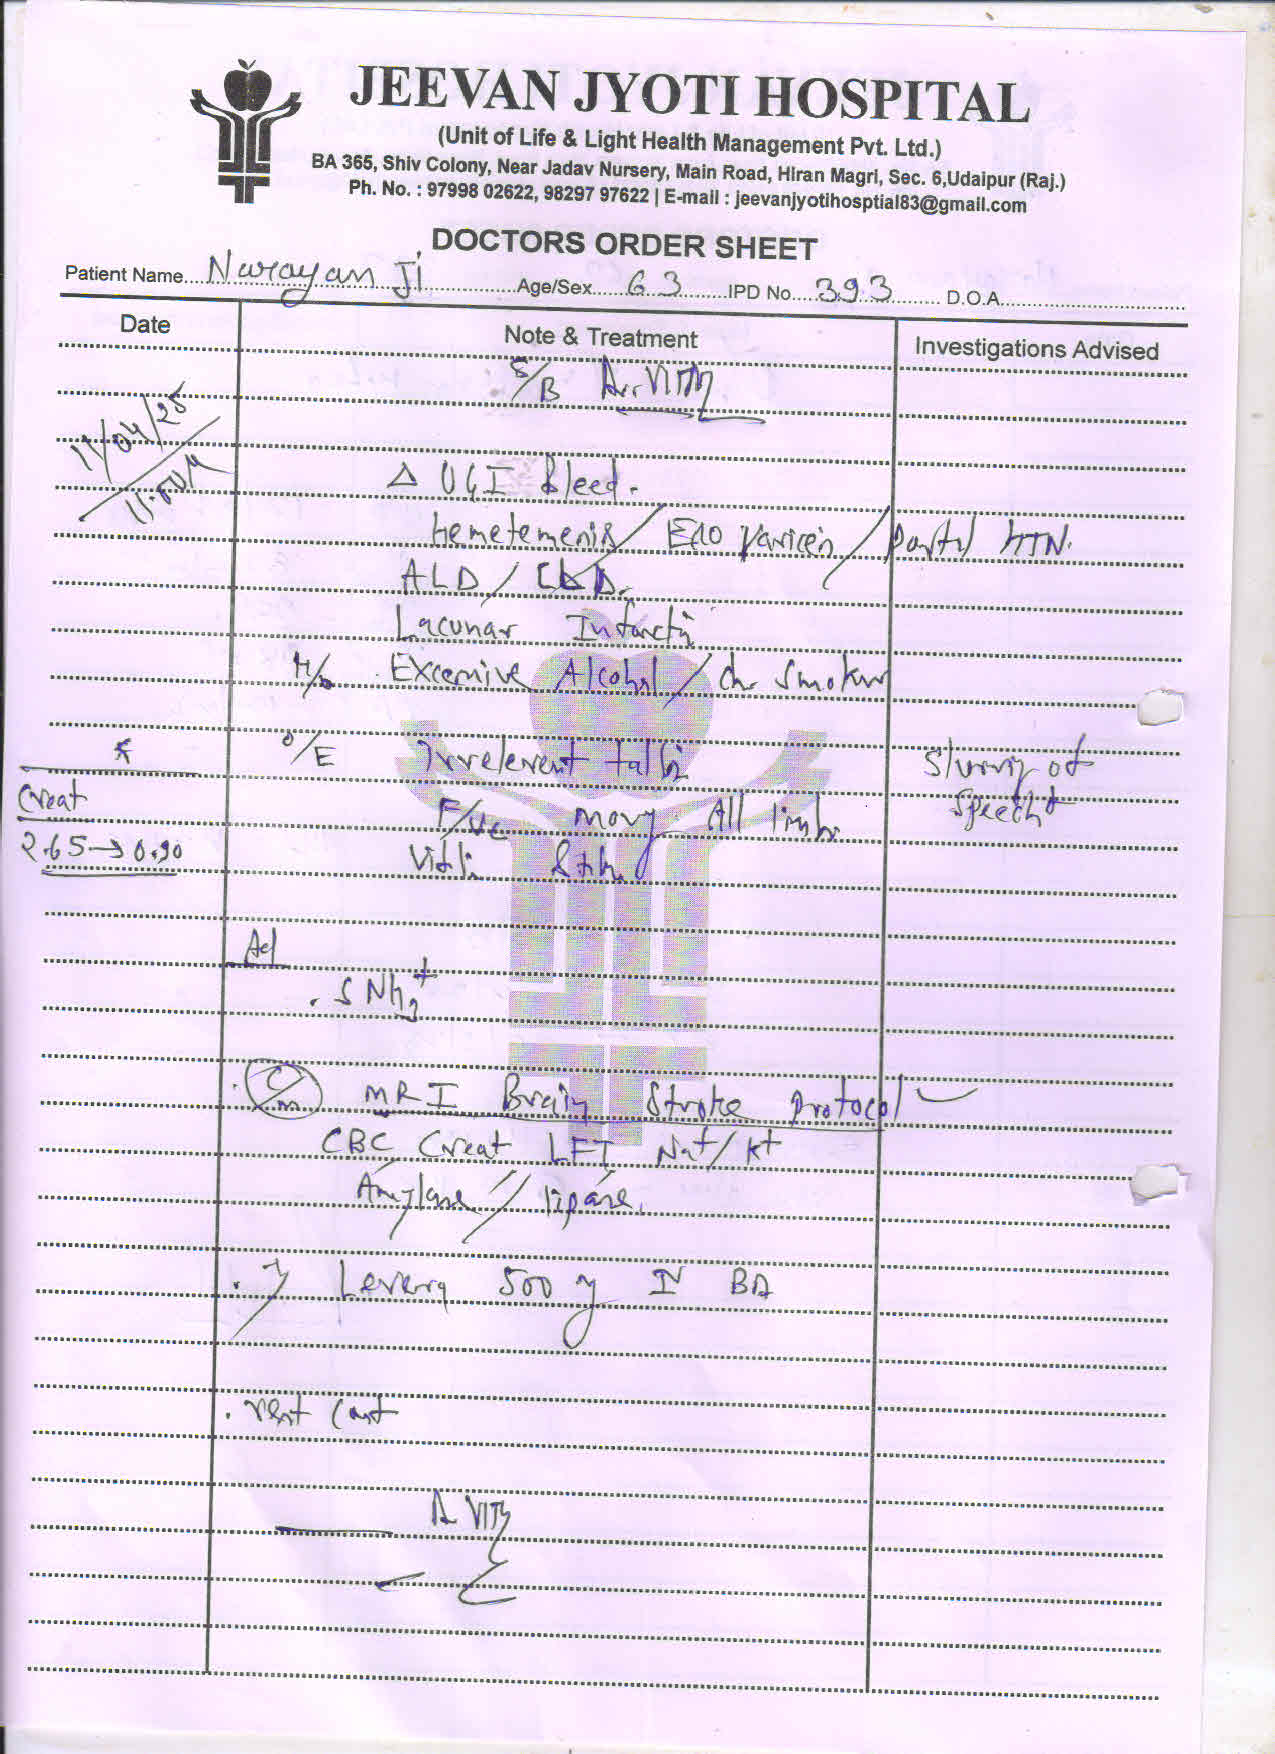 JEEVAN JYOTI HOSPITAL
(Unit of Life & Light Health Management Pvt. Ltd.)
BA 365, Shiv Colony, Near Jadav Nursery, Main Road, Hiran Magri, Sec. 6,Udaipur (Raj.)
Ph. No. : 97998 02622, 98297 97622 | E-mail : jeevanjyotihosptial83@gmail.com
DOCTORS ORDER SHEET
Patient Name Narayan Ji Age/Sex 63 IPD No. 393 D.O.A.
Date Note & Treatment Investigations Advised
S/B
11/04/25
△ UGI Bleed.
Hemetemenis / / Portal HTN.
ALD /
Lacunar Infarct
H/o Excemive Alcohol / Chr Smoker
* O/E Irrelevent talk Slurring of
Speech +
Creat F/VC moving All limbs
2.65→0.90 Vitals Stable
Ad
. S NH3+
. C/m MRI Brain Stroke Protocol
CBC Creat LFT Na+/K+
Amylase // lipase.
500 IV BD
. rest Cont